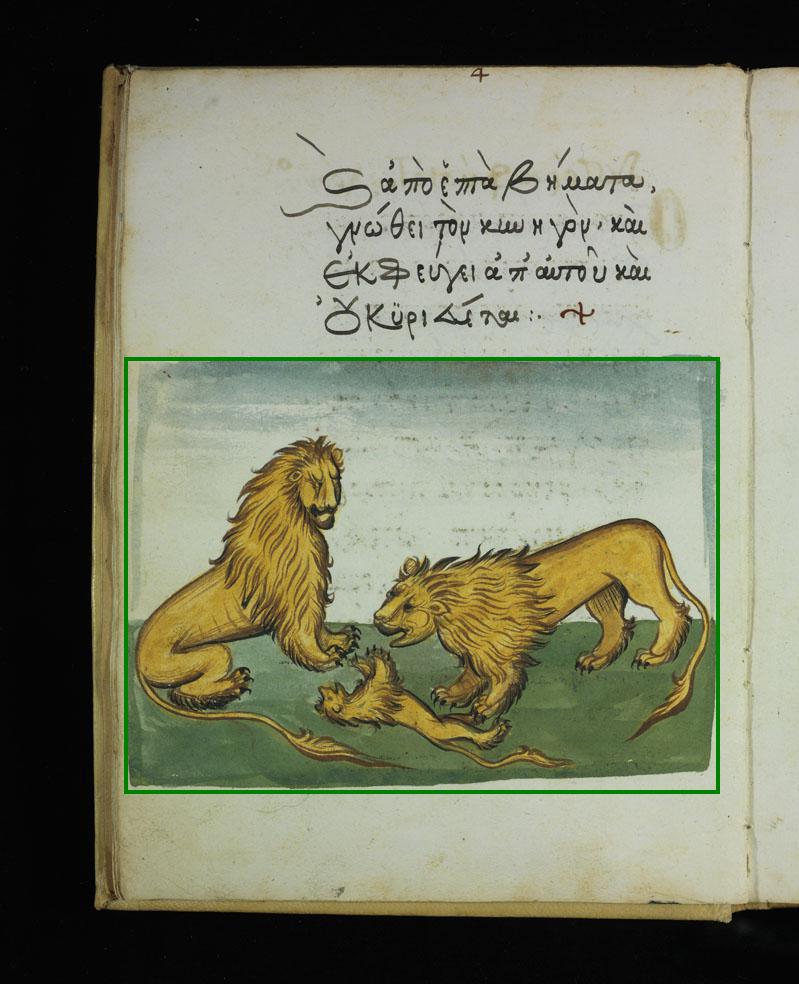 4
ἀπὸ ἑπτὰ βήματα,
γνώθει τὸν κυνηγὸν· καὶ
ἐκφεύγει ἀπ' αὐτοῦ καὶ
οὐ κϋριεύεται:.